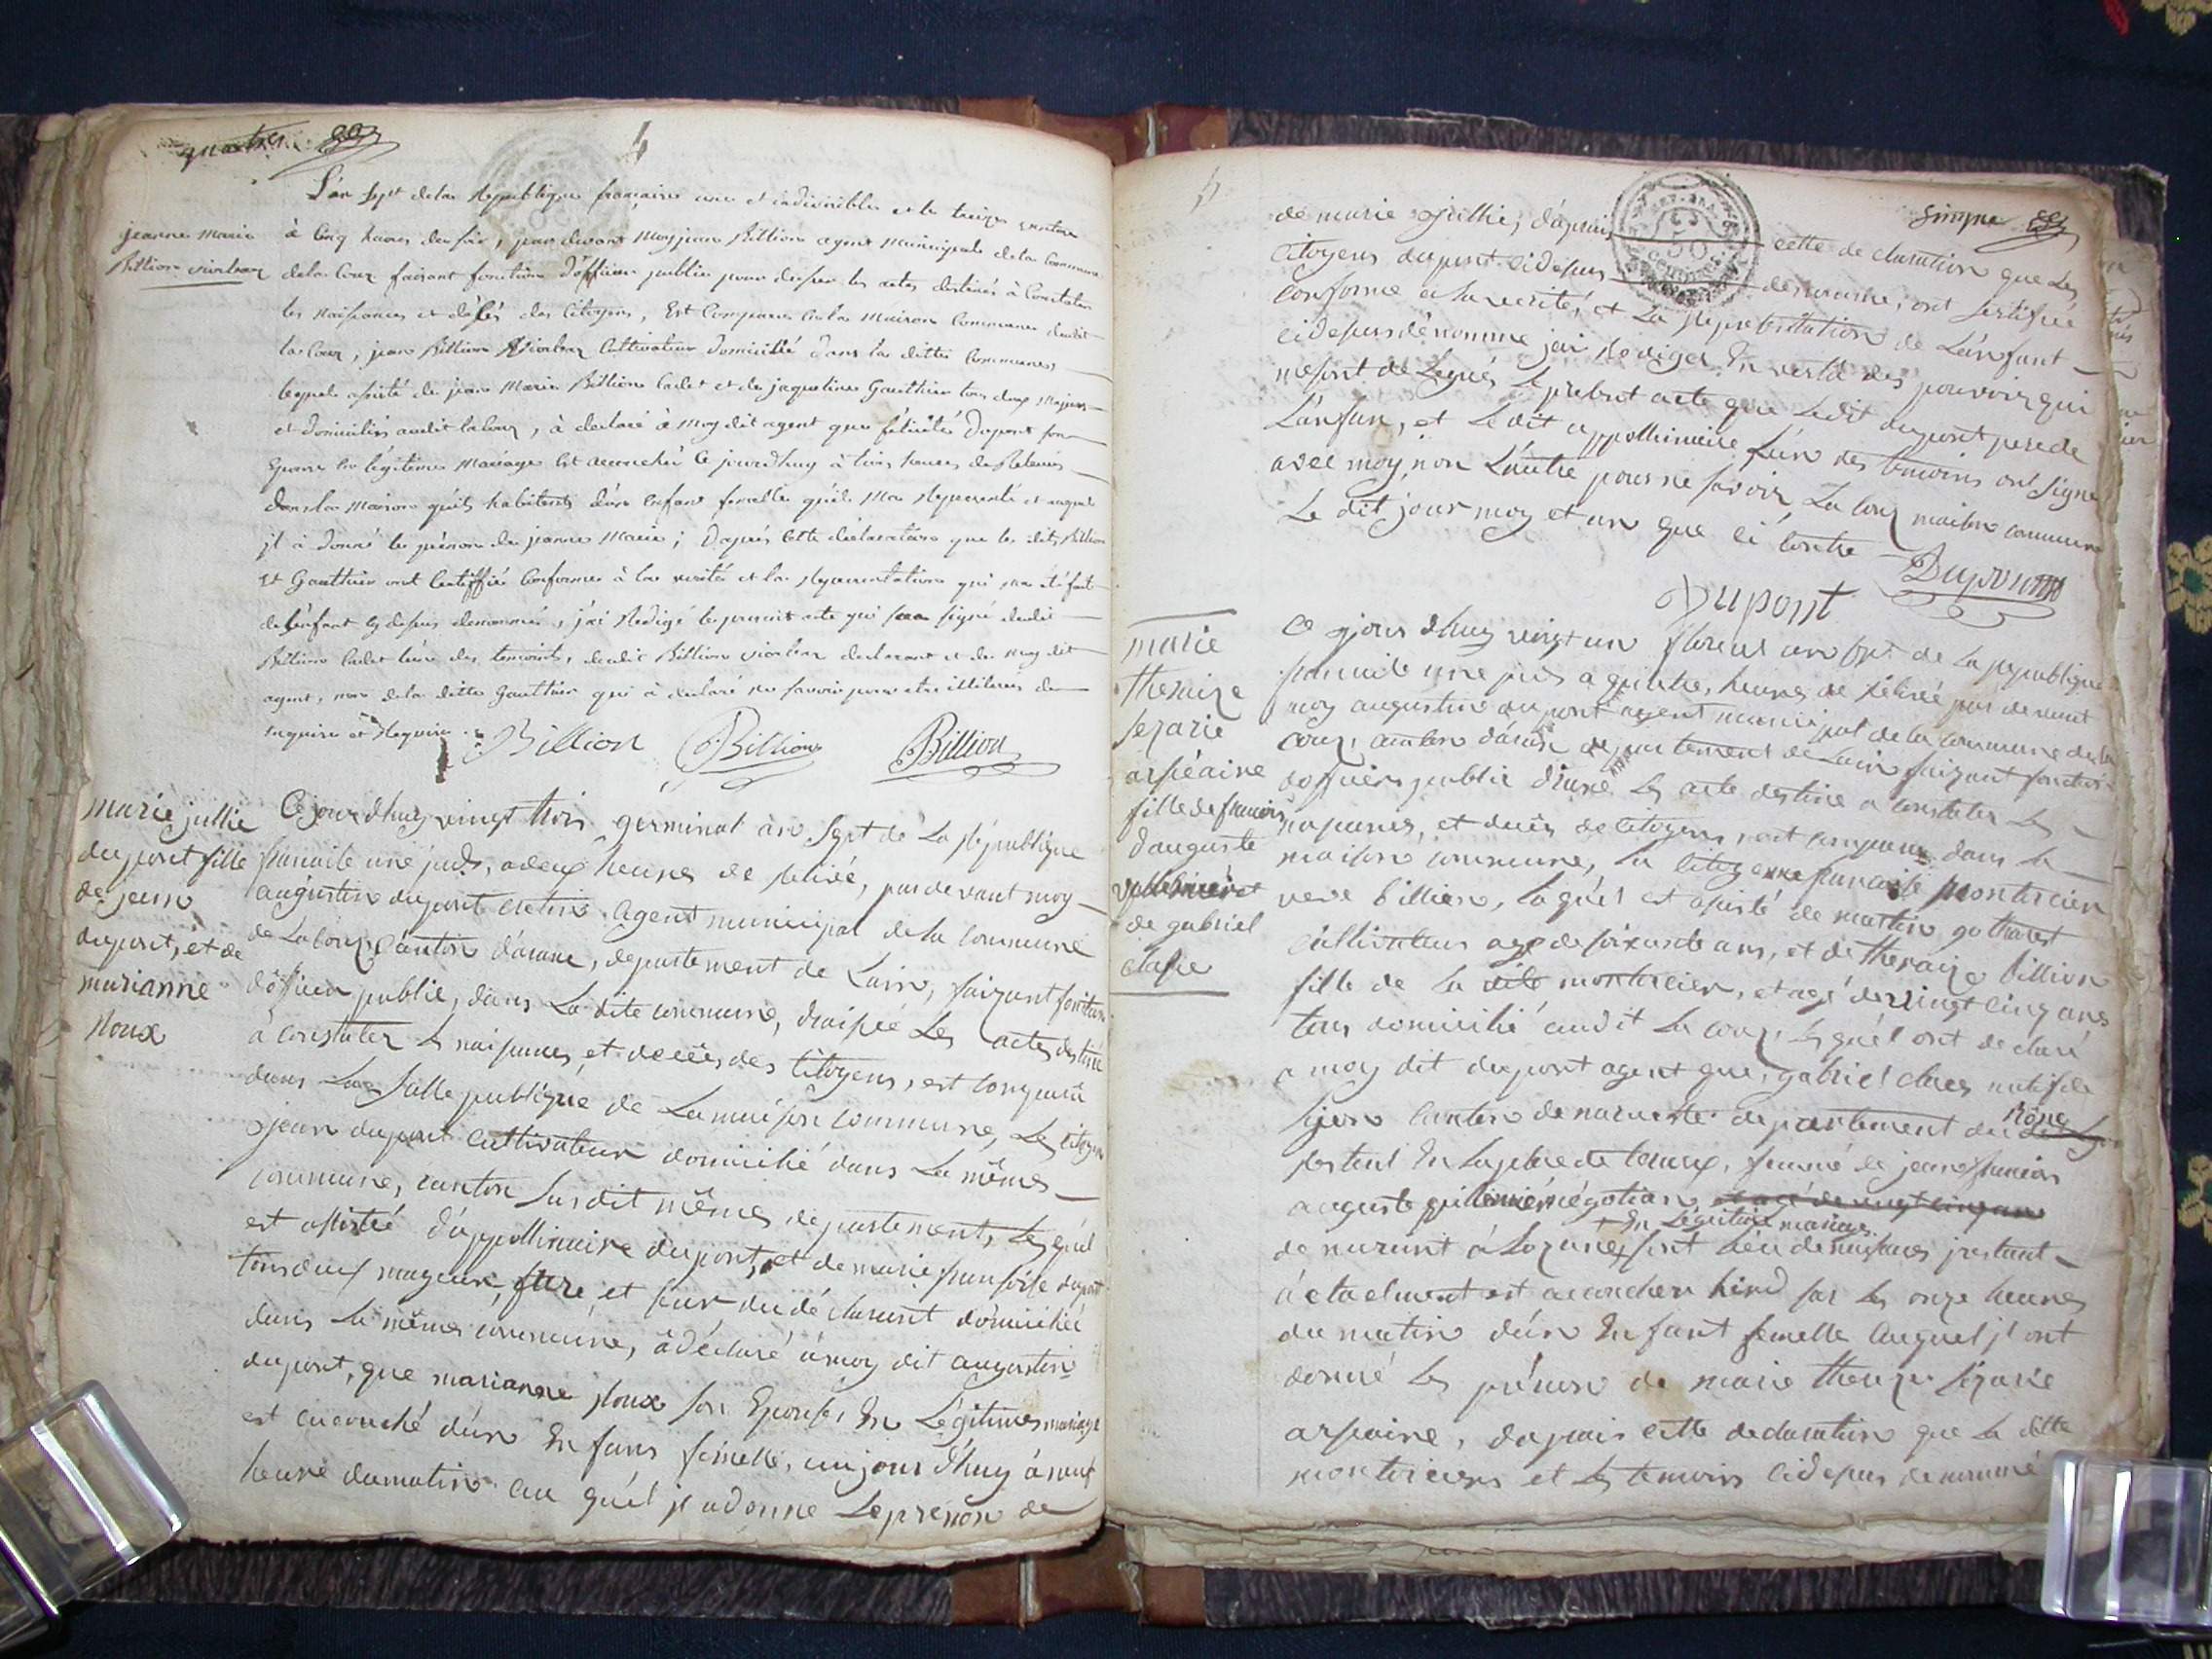 quatre
4
L'an sept de la Republique francaise une et indivisible et le treize ventose
jeanne marie
Billion violeau
à cinq heures du soir, par devant Moy jean Billion agent Municipale de la Commune
de la Coux faisant fonctions d'officier public pour dresser les actes destinés à Constater
les naissances et décés des Citoyens, Est Comparu en la Maison Commune dudit
la Coux, jean Billion Cultivateur domicilié dans la ditte Commune,
lequel assisté de jean Marie Billion Cadet et de jaqueline Gautthier tous deux Majeurs
et domiciliés audit la Coux, à declaré à Moy dit agent que felicité Dupont son
Epouse en légitime Mariage Est accouchée Ce jourdhuy à trois heures de Relevée
dans la Maison qu'ils habitents d'un enfant femelle qu'il Ma Representé et auquel
jl à donné le prénom de jeanne Marie ; D'aprés Cette déclaration que les dits Billion
Et Gautthier ont Certiffiés Conforme à la verité et la Representation qui ma été fait
de l'enfant cy dessus denommée, j'ai Redigé le present acte qui sera signé dudit
Billion Cadet l'un des temoints, dudit Billion declarant et de Moy dit
agent, non de la ditte Gautthier qui à declaré ne savoir pour etre illiterée de
enquise et Requise
Billion Billion Billion
marie jullie
dupont fille
de jean
dupont, et de
marianne
Roux
Ce jour dhuy vingt trois germinal an Sept de La République
francaite une jnds, a deux heures de relivé, par devant moy
augustin dupont cretin Agent municipal de la Commune
de La Coux Canton d'arane, departement de Lain, faizant fonction
dófficier public, dans La dite commune, Les actes destiné
à constater Les naissances, et decées des Citoyens, est Comparu
dans La Salle publique de La maison Commune, Le Citoyen
jean dupont Cultivateur domicilié dans La mêmes
commune, canton Susdit mêmes departement, Lequél
est assisté d'appollinaire dupont, et de marie fransoise dupont
tous deux mageur, frere, et seur du déclarant domicilié
dans La mêmes commune, à déclaré à moy dit augustin
dupont, que marianne Roux Son Epouse, En Légitimes mariage
est accouché d'un Enfans fémelle, aujour d'huy à neuf
heure du matin au quél jl a donne Le prenon de
Simqne
de marie Jullie, d'aprais cette declaration que Les
Citoyens dupont cidesus denommé, ont Sertifiée
Conforme à la verité, et La Representation de Lénfant
cidesus dénomme jai Rediger En vertu des pouvoir qui
mesont delegués Le présent acte que Ledit dupont pere de
Lánfan, et Le dit appollinaire L'un des temoins ont Signe
avec moy, non L'autre pour ne savoir La Coux maison commune
Le dit jour moy et an que ci contre
Dupont Dupont
marie
theraize
Sezarie
arseaine
fille de francois
d'auguste
de gabriel
Ce jour d'huy vingt un floreal an sept de La Republique
francaite une jnds a quatre, heures de relivé par devant
moy augustin dupont agent municipal de la commune de La
Coux, canton d'arane departement de Lain faizant fonction
dofficiers public Les acte destiné a constater Les
nasances, et decés de Citoyens, est comparue dans La
maison commune, La Citoyenne francoise montarcier
veve billion, Laquél est asisté de martin
cultivateur agé de soixante ans, et de theraize billion
fille de La dite montarcier, et agé de vingt cinq ans
tous domicilié audit La Coux, Lesquél ont declaré
a moy dit dupont agent que, gabriel natif de
Lyon Canton de departement du Rône
restent En La place de , femme de jean francois
auguste negotian et agé de vingt cinq ans
En Légitime mariage
de à Lozane, sont Lieu de naisances restant
à ctuelment est accoucher hierd sur Les onze heures
du matin d'un Enfant femelle auquel jl ont
donné Les prénon de marie theraize Sezarie
arseaine, daprais cette declaration que La ditte
montarcier et Les temoins cidesus denommé